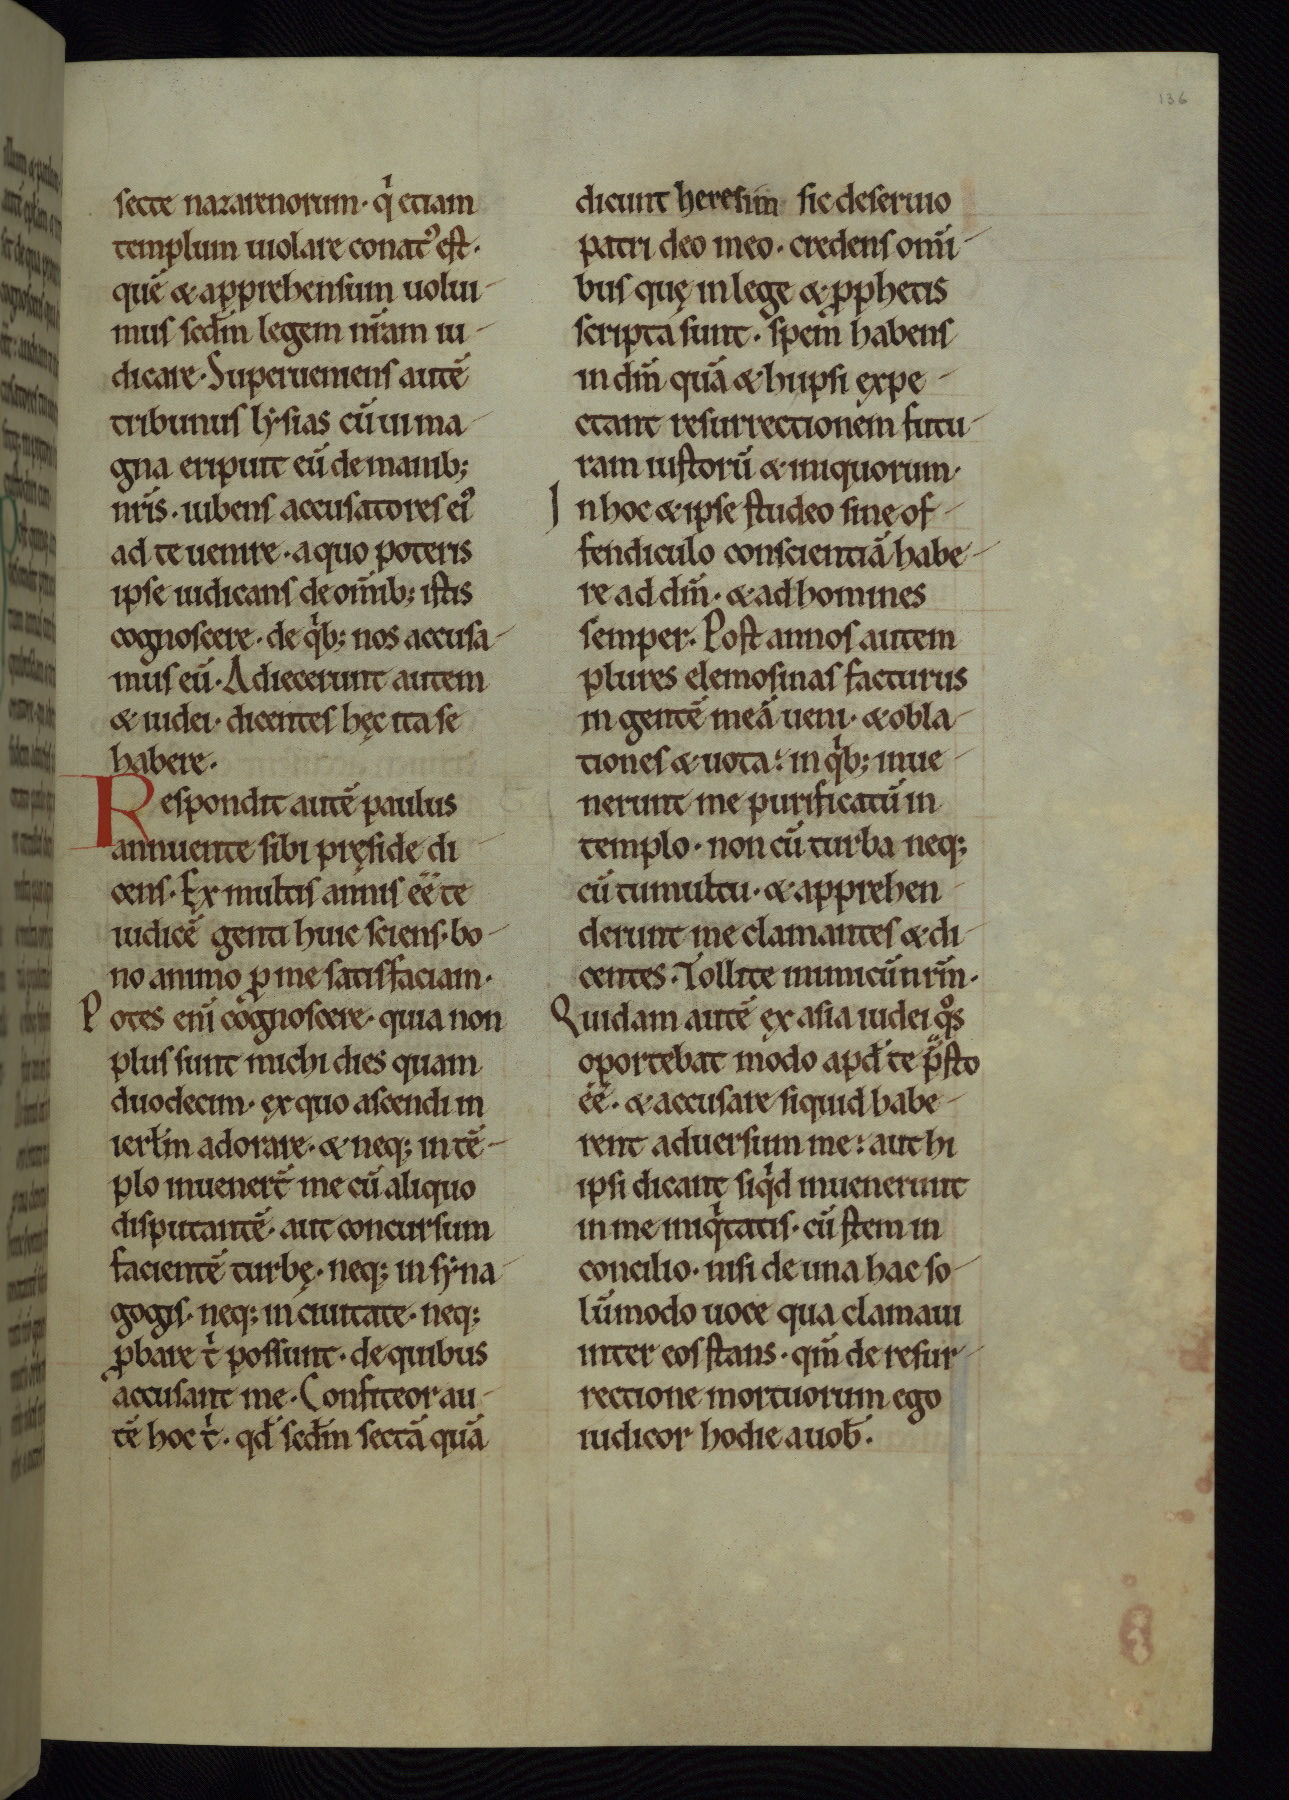 136
secte nazarenorum· q̍ etiam
templum uiolare conat᾽ est·
quē & apprehensum uolui-
mus scd̄m legem nr̄am iu-
dicare· Superueniens autē
tribunus lẏsias cū ui ma-
gna eripuit eū de manib;
nr̄is· iubens accusatores ei᾽
ad te uenire· a quo poteris
ipse iudicans de om̄ib; istis
cognoscere· de q̍b; nos accusa-
mus eū· Adiecerunt autem
& iudei· dicentes hęc ita se
habere·
Respondit autē paulus
annuente sibi pręside di-
cens· Ex multis annis ēē te
iudicē genti huic sciens· bo-
no animo ꝓ me satisfaciam·
Potes eni᷑ cognoscere· quia non
plus sunt michi dies quam
duodecim· ex quo ascendi in
ierl̄m adorare· & neq; in tē-
plo inuener̄t me cū aliquo
disputantē· aut concursum
facientē turbę· neq; in sẏna-
gogis· neq; in ciuitate· neq;
ꝓbare t̍ possunt· de quibus
accusant me· Confiteor au-
tē hoc t̍· qd̄ scd̄m sectā quā
dicunt heresim sic deseruio
patri deo meo· credens om̄i-
bus quę in lege & ꝓphetis
scripta sunt· spem habens
in dm̄ quā & hi ipsi expe-
ctant resurrectionem futu-
ram iustorū & iniquorum·
In hoc & ipse studeo sine of-
fendiculo conscientiā habe-
re ad dm̄· & ad homines
semper· Post annos autem
plures elemosinas facturus
in gentē meā ueni· & obla-
tiones & uota: in q̍b; inue-
nerunt me purificatū in
templo· non cū turba neq;
cū tumultu· & apprehen-
derunt me clamantes & di-
centes· Tollite inimicū nr̄m·
Quidam autē ex asia iudei qͦs
oportebat modo apd̄ te p̄sto
ēē· & accusare siquid habe-
rent aduersum me: aut hi
ipsi dicant siq̍d inuenerunt
in me iniq̍tatis· cū stem in
concilio· nisi de una hac so-
lūmodo uoce qua clamaui
inter eos stans· qm̄ de resur-
rectione mortuorum ego
iudicor hodie a uob̄·